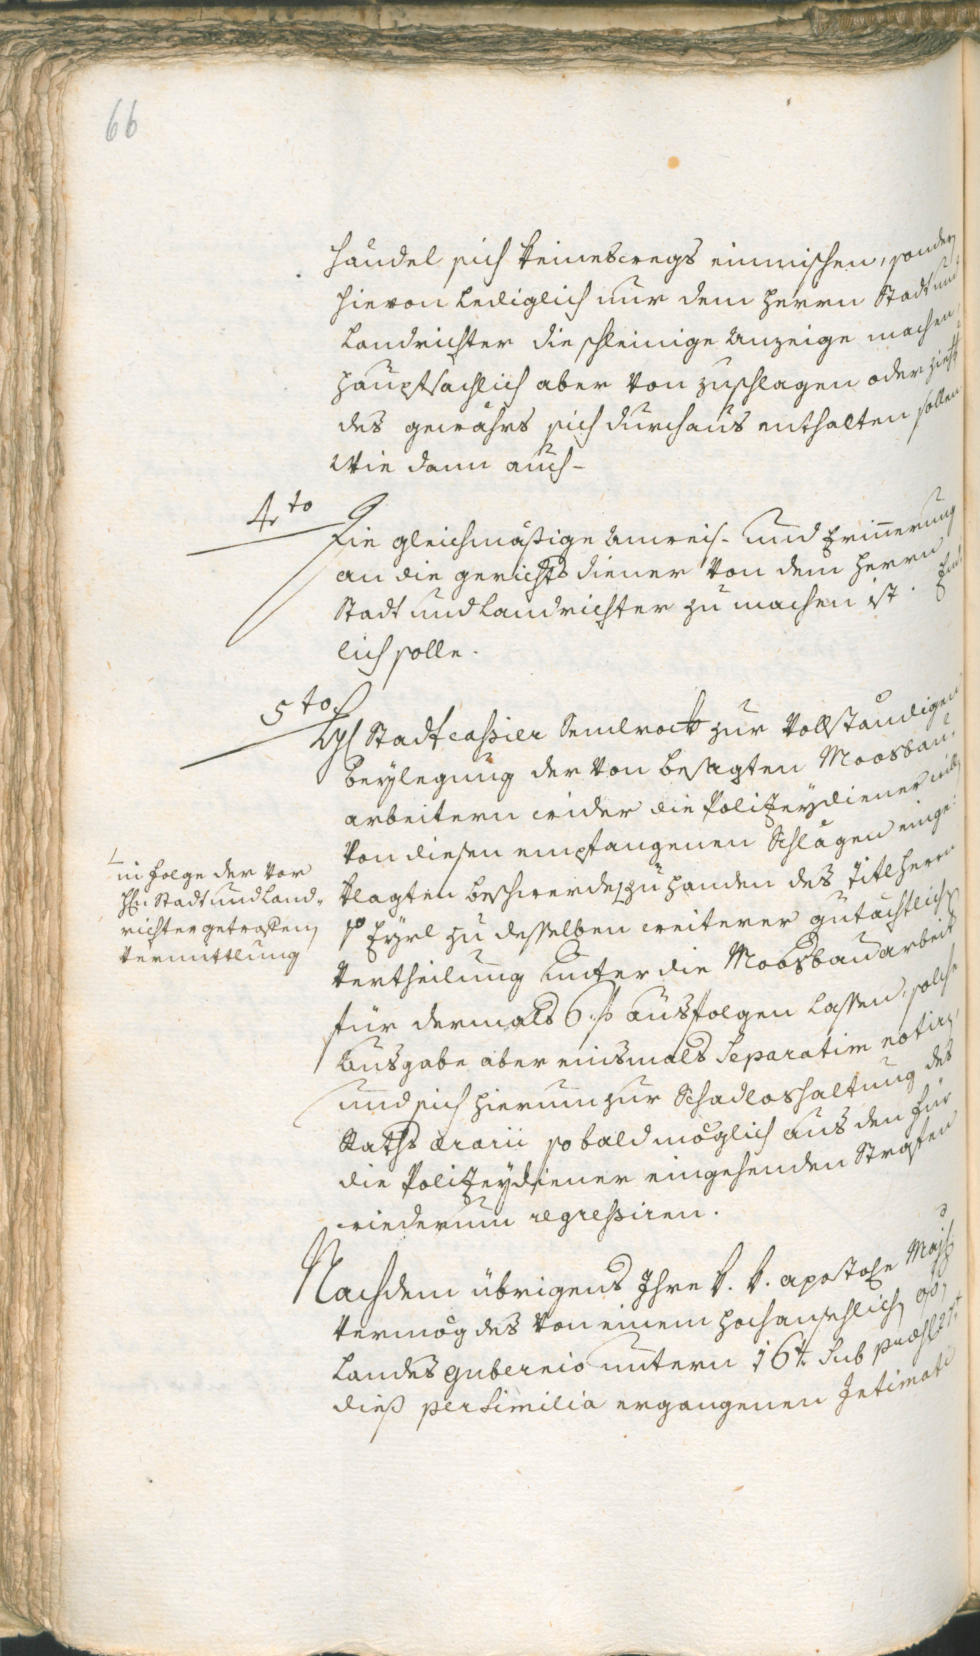 66
händel sich keineswegs einmischen, sondern
hievon lediglich nur dem Herrn Stadt und
Landrichter die schleinige Anzeige machen,
hauptsächlich aber von zuschlagen oder
des gewährs sich durchaus enthalten sollen
Wie dann auch-
4to
Die gleichmäßige Anweis- und Erinnerung
an die gerichts diener von dem Herrn
Stadt und Landrichter zu machen ist. End
lich solle.
5to
Hl Stadt cassier Semlrock zur vollständigen
beylegung der von besagten Moosbau-
arbeitern wider die Polizeydiener
von diesen empfangenen Schlägen einge-
klagten beschwerden zu handen des Titl Herrn
v Eyrl zu desselben weiterer gutächtlich
Vertheilung unter die Moosbauarbeit
für dermals 6 f ausfolgen lassen, solche
Ausgabe aber einsmals Separatim notirn,
und sich hierum zur Schadloshaltung des
Raths ararii so bald möglich aus den für
die Polizeydiener eingehenden Strafen
wiederum regressiren.
in folge der vor
Hn Stadt und Land-
richter getroffenen
Vermittlung
Nachdem übrigens Ihre k. k. apostole Majst
vermög des von einem hochansehlich
Landes gubernio untern 16t Sub
dieß per Similia ergangenen Intimati